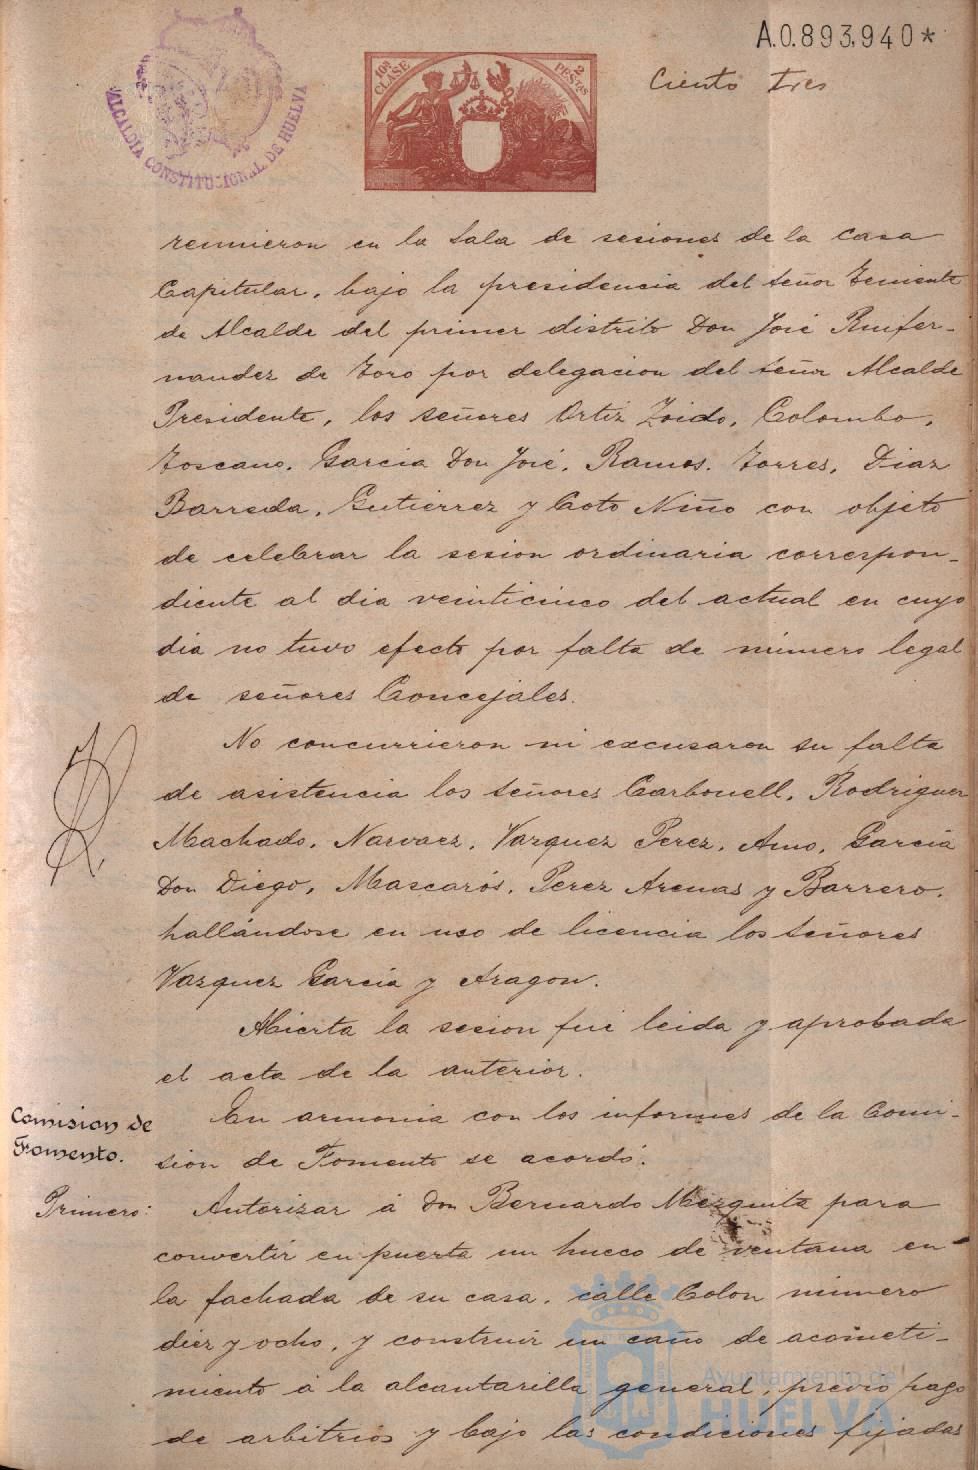 A.0.893,940*
Ciento tres
10ª CLASE
2 PESETAS
ALCALDIA CONSTITUCIONAL DE HUELVA
reunieron en la Sala de sesiones de la Casa
Capitular, bajo la presidencia del señor Teniente
de Alcalde del primer distrito Don José Ruifer-
nandez de Toro por delegacion del señor Alcalde
Presidente, los señores Ortiz Zoido, Colombo,
Toscano, Garcia Don José, Ramos, Torres, Diaz
Barreda, Gutierrez y Coto Niño con objeto
de celebrar la sesion ordinaria correspon-
diente al dia veinticinco del actual en cuyo
dia no tuvo efecto por falta de número legal
de señores Concejales.
No concurrieron ni excusaron su falta
de asistencia los señores Carbonell, Rodriguez
Machado, Narvaez, Vazquez Perez, Amo, Garcia
Don Diego, Mascarós, Perez Arenas y Barrero,
hallándose en uso de licencia los señores
Vazquez Garcia y Aragon.
Abierta la sesion fué leida y aprobada
el acta de la anterior.
Comision de
Fomento.
En armonia con los informes de la Comi-
sion de Fomento se acordó:
Primero:
Autorizar á Don Bernardo Mezquita para
convertir en puerta un hueco de ventana en
la fachada de su casa, calle Colon número
diez y ocho, y construir un caño de acometi-
miento á la alcantarilla general, previo pago
de arbitrios y bajo las condiciones fijadas
Ayuntamiento de
HUELVA